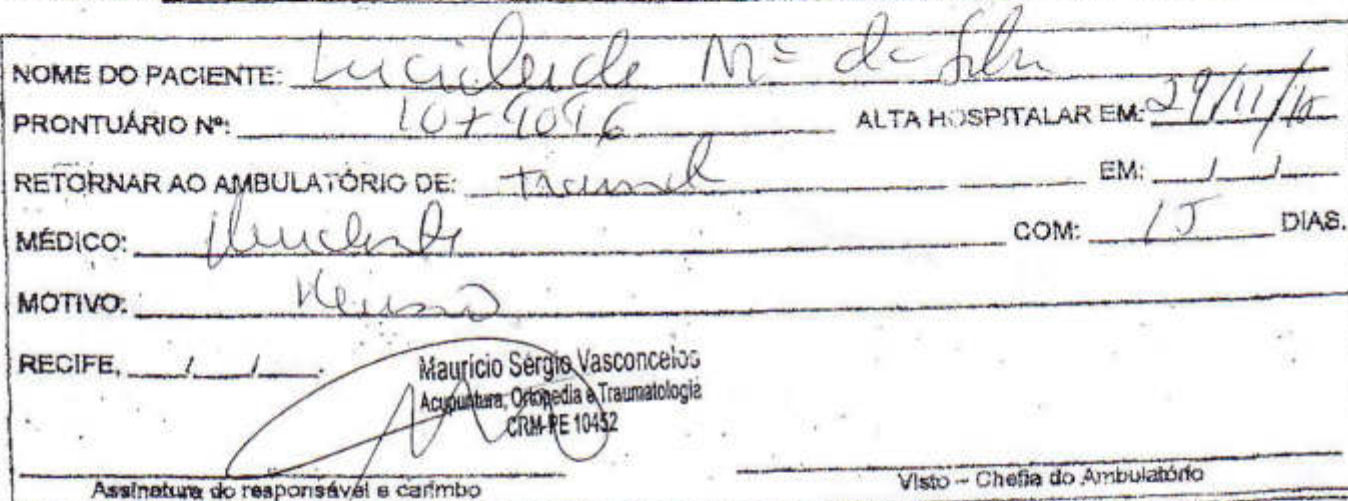 NOME DO PACIENTE: Lucicleide Mª da Silva
PRONTUÁRIO Nº: ALTA HOSPITALAR EM: 29/11/
RETORNAR AO AMBULATÓRIO DE: EM: / /
MÉDICO: COM: 15 DIAS.
MOTIVO:
RECIFE, / / .
Maurício Sérgio Vasconcelos
Acupuntura, Ortopedia e Traumatologia
CRM-PE 10452
Assinatura do responsável e carimbo Visto – Chefia do Ambulatório